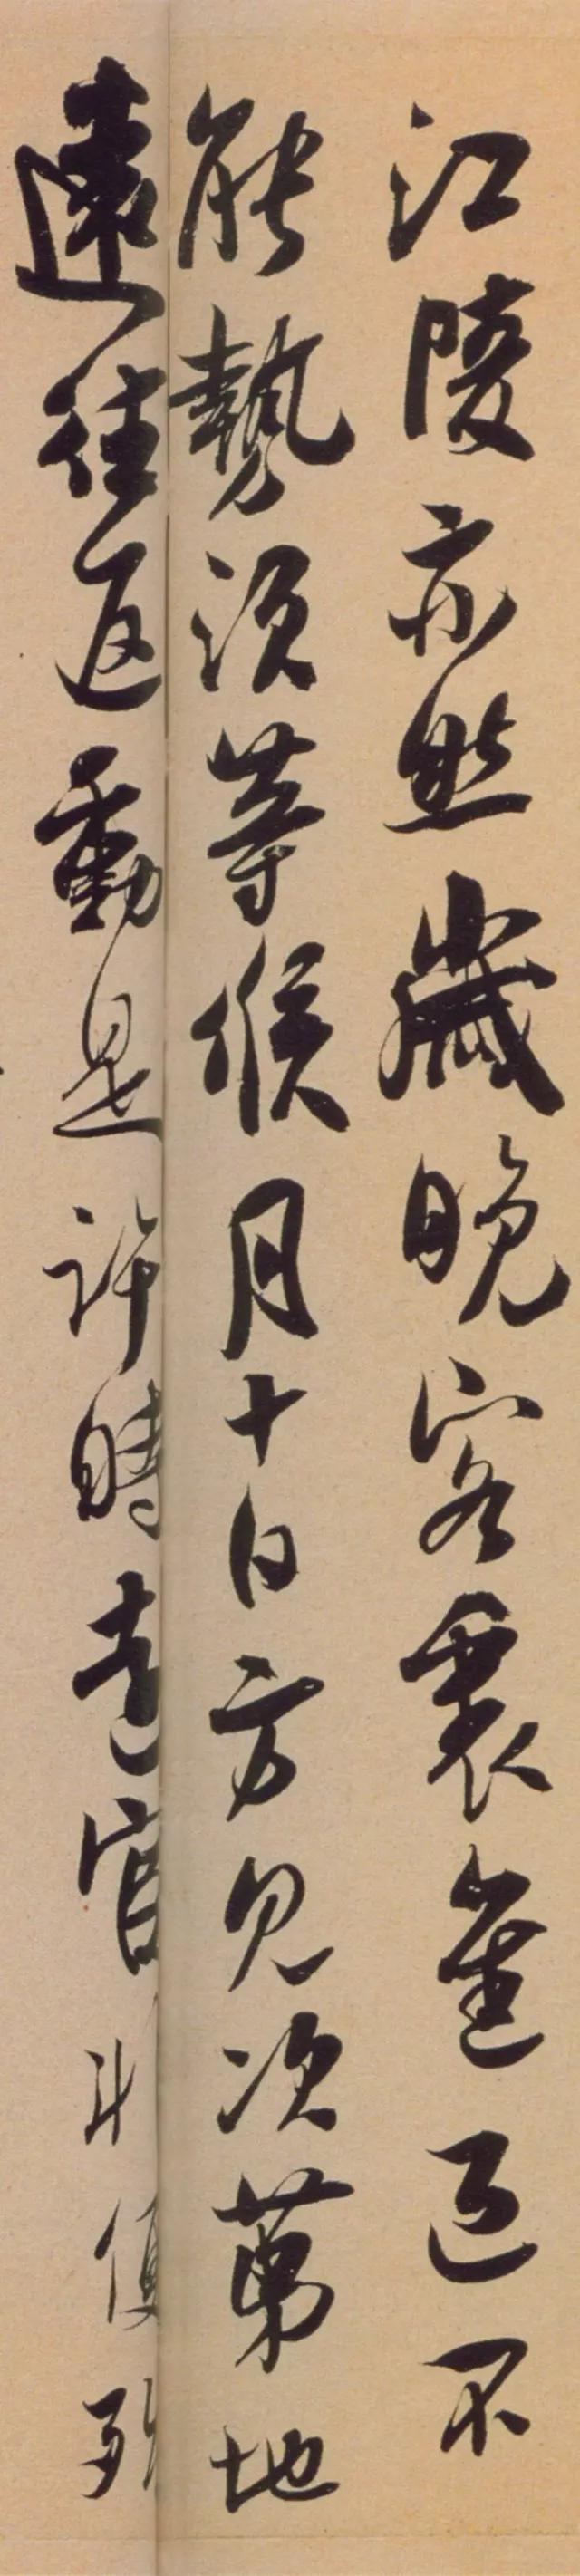 江陵亦然歲晚客裏迫不
能勢須等候月十日方見次第地
遠往返動是許時遠官便